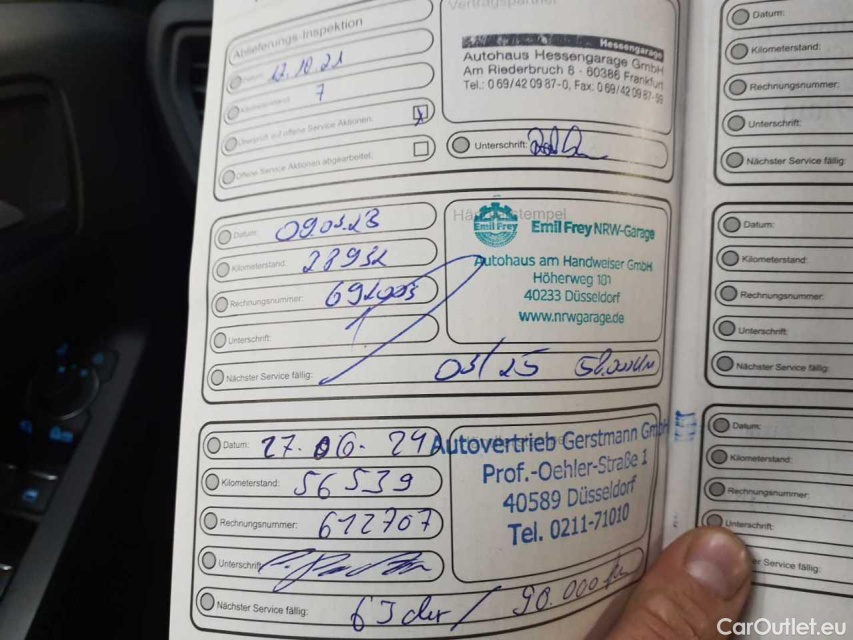 Vertragspartner
Ablieferungs-Inspektion
12.10.21
7
Überprüft auf offene Service Aktionen:
Offene Service Aktionen abgearbeitet:
Hessengarage
Autohaus Hessengarage GmbH
Am Riederbruch 8 - 60386 Frankfurt
Tel.: 0 69/42 09 87-0, Fax: 0 69/42 09 87-99
Unterschrift:
Datum: 09.03.23
Kilometerstand: 28932
Rechnungsnummer:
Unterschrift:
Nächster Service fällig: 03/25
Emil Frey
Emil Frey NRW-Garage
Autohaus am Handweiser GmbH
Höherweg 181
40233 Düsseldorf
www.nrwgarage.de
Datum: 27.06.24
Kilometerstand: 56539
Rechnungsnummer: 612707
Unterschrift
Nächster Service fällig: / 90.000
Autovertrieb Gerstmann GmbH
Prof.-Oehler-Straße 1
40589 Düsseldorf
Tel. 0211-71010
Datum:
Kilometerstand:
Rechnungsnummer:
Unterschrift:
Nächster Service fällig:
Datum:
Kilometerstand:
Rechnungsnummer:
Unterschrift:
Nächster Service fällig:
Datum:
Kilometerstand:
Rechnungsnummer:
Unterschrift:
er Service fällig:
CarOutlet.eu